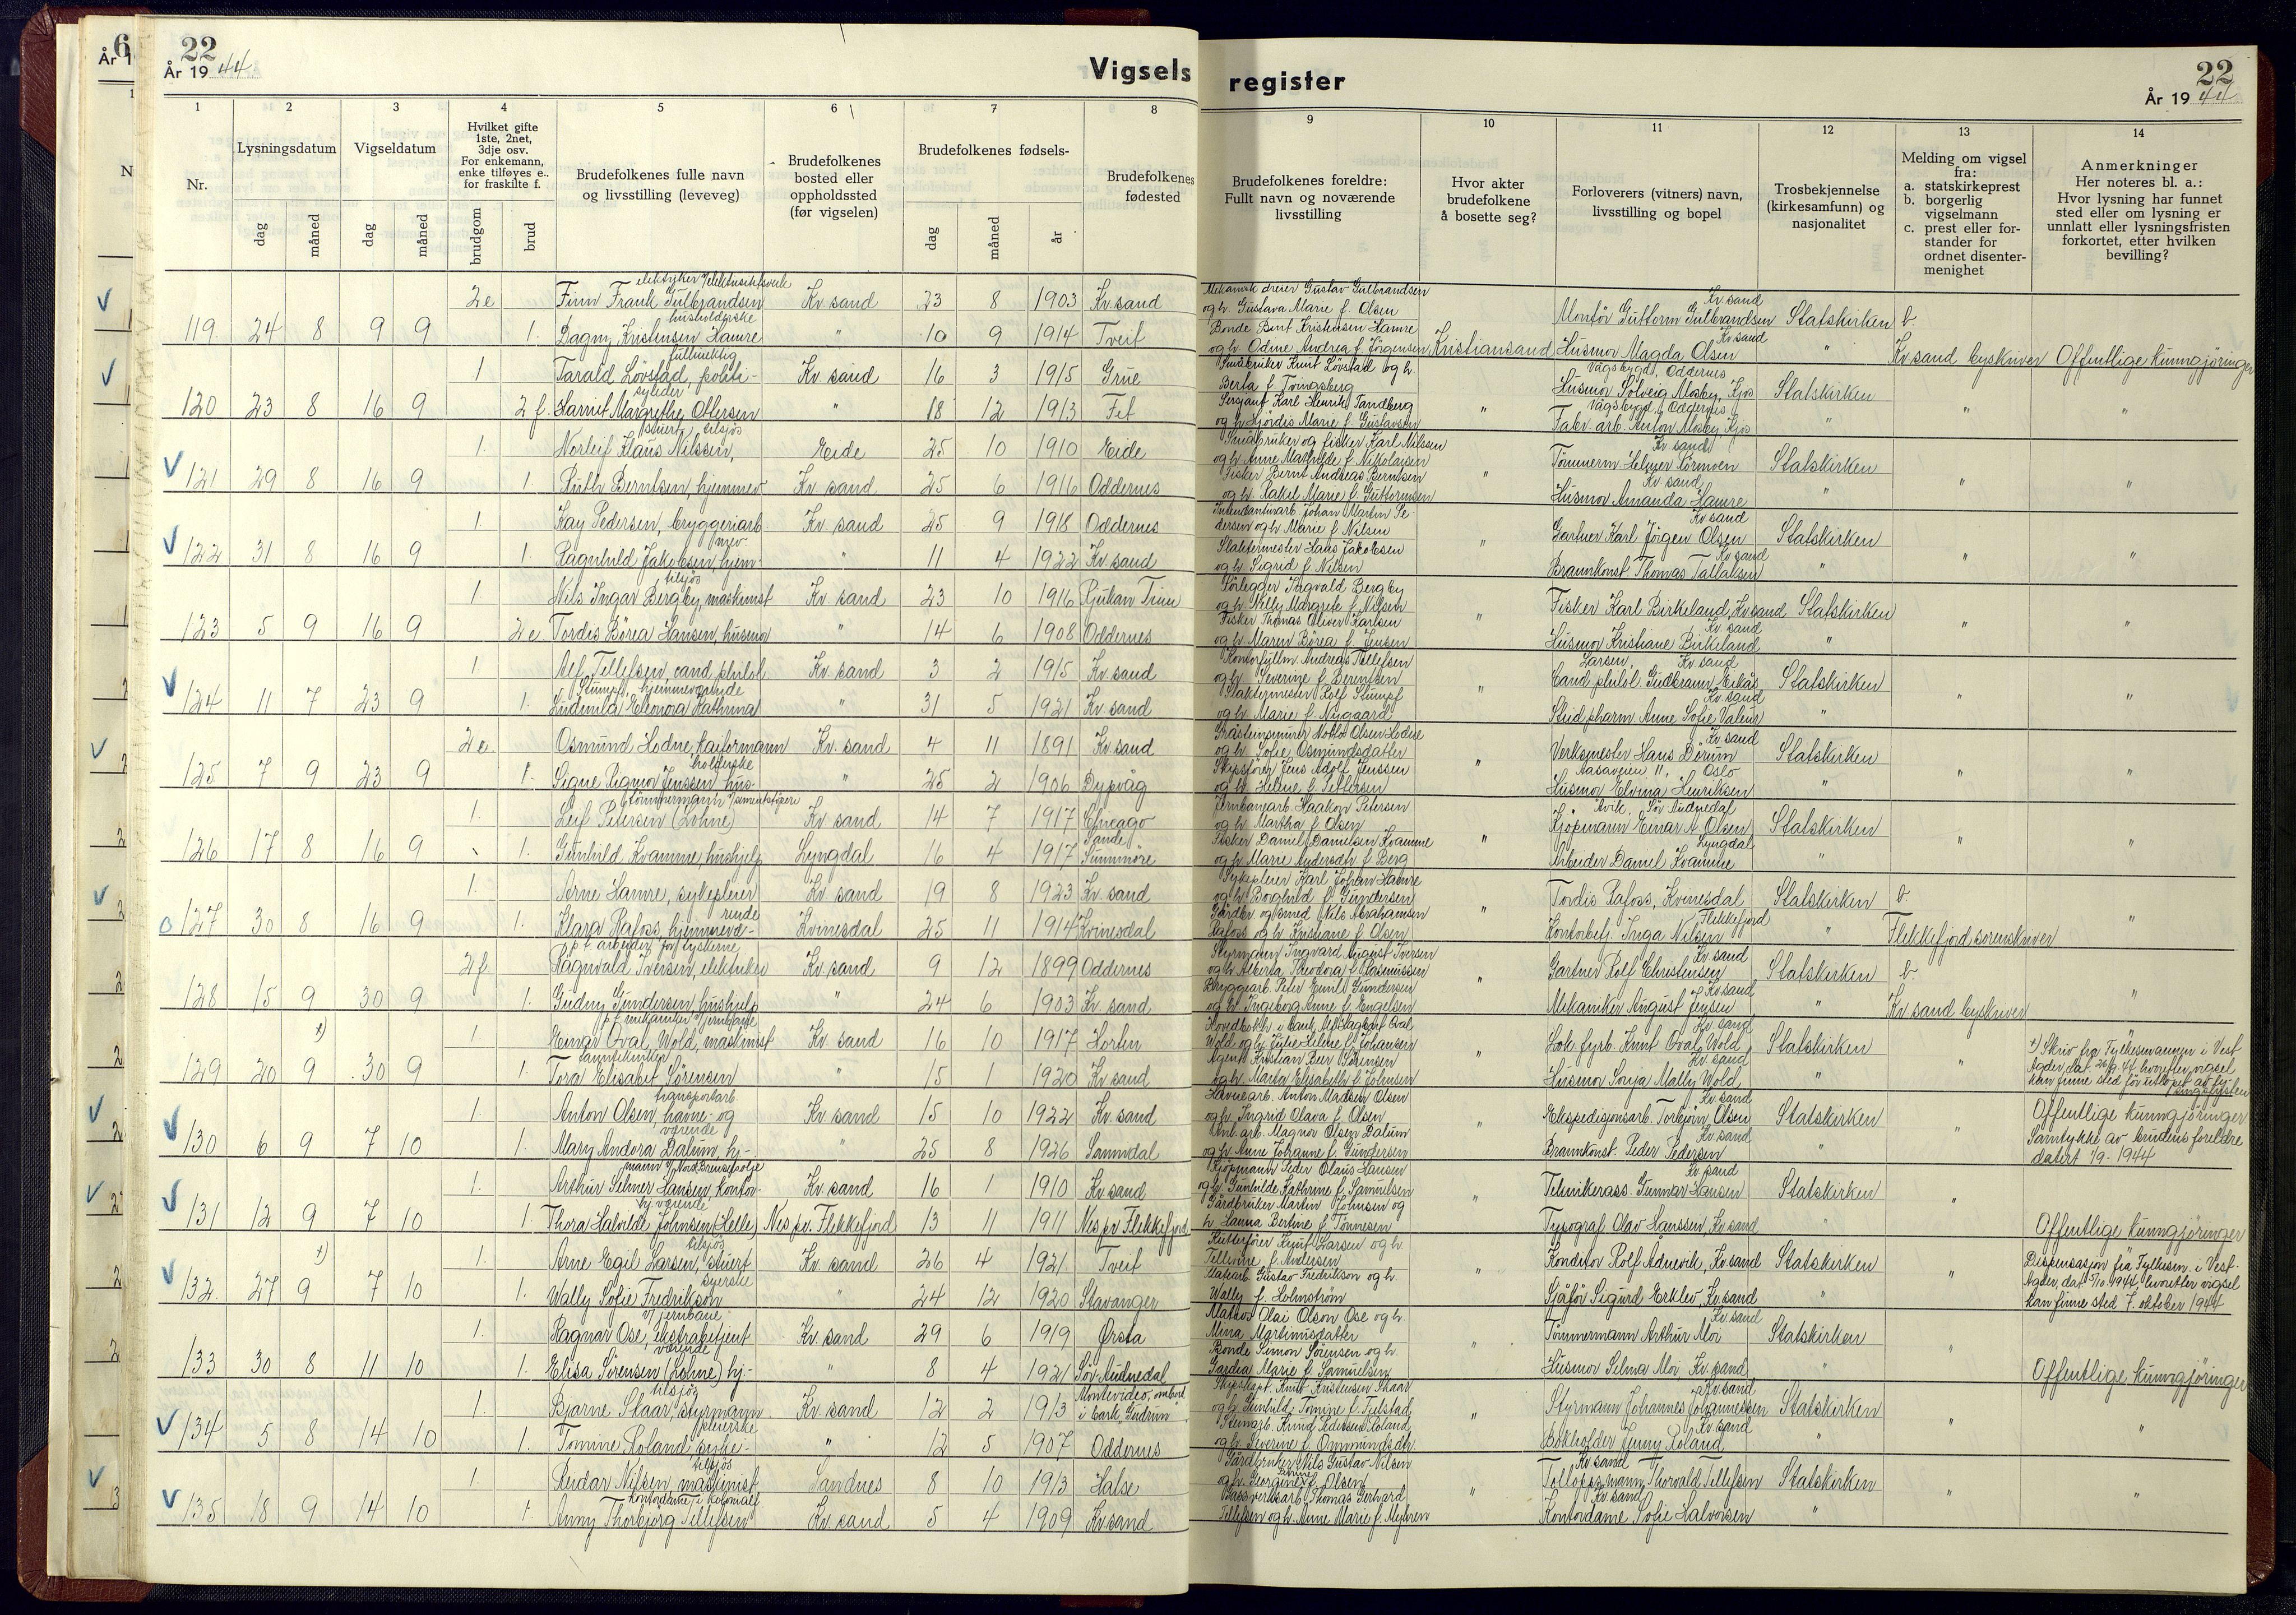 22
År 1944.
Vigselsregister
22
År 1944
1 2 3 4 5 6 7 8 9 10 11 12 13 14
Nr.
Lysningsdatum
dag måned
Vigseldatum
dag måned
Hvilket gifte
1ste, 2net,
3dje osv.
For enkemann,
enke tilføyes e.,
for fraskilte f.
brudgom brud
Brudefolkenes fulle navn
og livsstilling (leveveg)
Brudefolkenes
bosted eller
oppholdssted
(før vigselen)
Brudefolkenes fødsels-
dag måned år
Brudefolkenes
fødested
Brudefolkenes foreldre:
Fullt navn og noværende
livsstilling
Hvor akter
brudefolkene
å bosette seg?
Forloverers (vitners) navn,
livsstilling og bopel
Trosbekjennelse
(kirkesamfunn) og
nasjonalitet
Melding om vigsel
fra:
a. statskirkeprest
b. borgerlig
vigselmann
c. prest eller for-
stander for
ordnet disenter-
menighet
Anmerkninger
Her noteres bl. a.:
Hvor lysning har funnet
sted eller om lysning er
unnlatt eller lysningsfristen
forkortet, etter hvilken
bevilling?
2e Finn Frank Gulbrandsen Kr. sand 23 8 1903 Kr sand Mekanisk dreier Gustav Gulbrandsen og h. Gustava Marie f. Olsen Montör Guttorm Gulbrandsen Kr sand Statskirken b
119 24 8 9 9 1. Dagny Kristensen Hamre husholderske " 10 9 1914 Tveit Bonde Bent Kristensen Hamre og h. Odine Andrea f. Jörgensen Kristiansand Husmor Magda Olsen Kr sand " Kr sand byskriver Offentlige kunngjöringer
1 Tarald Lövstad, politi-fullmektig Kr. sand 16 3 1915 Grue Småbruker Knut Lövstad og h. Berta f. Tvingsberg Husmor Solveig Mosby, Kjos Vågsbygd, Oddernes Statskirken
120 23 8 16 9 2 f. Harriet Margrethe Ottersen syleder " 18 12 1913 Fet Sersjant Karl Henrik Tandberg og h. Hjördis Marie f. Gustavsen " Fabr. arb. Anton Mosby Kjos Vågsbygd, Oddernes " " "
1. Norleif Klaus Nilssen, stuert tilsjös Eide 25 10 1910 Eide Småbruker og fisker Karl Nilssen og h. Anne Mathilde f. Nikolaisen Tömmerm. Helmer Törmoen Kr sand Statskirken
121 29 8 16 9 1. Ruth Berntsen, hjemmev. Kr. sand 25 6 1916 Oddernes Fisker Bernt Andreas Berntsen og h. Rakel Marie f. Guttormsen " Husmor Amanda Hamre Kr sand " " "
1. Kay Pedersen, bryggeriarb. Kr. sand 25 9 1918 Oddernes Intendanturarb. Johan Martin Pedersen og h. Marie f. Nilsen Gartner Karl Jörgen Olsen Kr sand Statskirken
122 31 8 16 9 1. Ragnhild Jakobsen, hjem- mev. " 11 4 1922 Kr. sand Slaktermester Hans Jakobsen og h. Sigrid f. Nilsen " Brannkonst. Thomas Tallaksen Kr sand " " "
1 Nils Ingar Bergby, maskinist tilsjös Kr. sand 23 10 1916 Rjukan Tinn Rörlegger Ingvald Bergby og h. Nelly Margrete f. Nilsen Fisker Karl Birkeland, Kr sand Statskirken
123 5 9 16 9 2e Tordis Börea Hansen, husmor " 14 6 1908 Oddernes Fisker Thomas Oliver Karlsen og h. Maren Börea f. Jensen " Husmor Kristiane Birkeland Kr. sand " " "
1. Alf Tellefsen, cand. philol. Kr. sand 3 2 1915 Kr. sand Kontorfullm. Andreas Tellefsen og h. Severine f. Berentsen Cand philol. Gudbrann Eikås Larsen, Kr. sand Statskirken
124 11 7 23 9 1. Ludmila Eleonora Kathrina Stumpf, hjemmeværende " 31 5 1921 Kr. sand Slaktermester Rolf Stumpf og h. Marie f. Nygaard " Stud pharm. Anne Sofie Valeur Kr sand " " "
2e. Osmund Hodne, kaiformann Kr. sand 4 11 1891 Kr sand Gråsteinsmurer Olsen Hodne og h. Sofie Osmundsdatter Verksmester Hans Dörum Kr sand Statskirken
125 7 9 23 9 1. Signe Ragna Jenssen hus- holderske " 25 2 1906 Dypvåg Skipsförer Jens Adolf Jenssen og h. Helene f. Pettersen " Husmor Elvina Henriksen Aasaveien 11, Oslo " " "
1. Leif Petersen (Lohne) tömmermann Kr sand 14 7 1917 Chicago Jernbanearb Haakon Petersen og h. Martha f. Olsen Kjöpmann Einar A. Olsen Sör Audnedal Statskirken
126 17 8 16 9 1. Gunhild Kvamme, hushjelp Lyngdal 16 4 1917 Sande Sunnmöre Fisker Daniel Danielsen Kvamme og h. Marie Andersdtr f. Berg " Arbeider Daniel Kvamme Lyngdal " " "
1. Arne Hamre, sykepleier Kr. sand 19 8 1923 Kr. sand Sykepleier Karl Johan Hamre og h. Borghild f. Gundersen Tordis Rafoss, Kvinesdal Statskirken b.
127 30 8 16 9 1. Klara Rafoss, hjemmevæ- rende Kvinesdal 25 11 1914 Kvinesdal Gårdbr. og smed Nils Abrahamsen Rafoss og h. Kristiane f. Olsen " Kontorbetj. Inga Nilsen Flekkefjord " Flekkefjord sorenskriver "
2 f. Ragnvald Iversen, elektriker p.t. arbeider for tyskerne Kr. sand 9 12 1899 Oddernes Styrmann Ingvard August Iversen og h. Alberta Theodora f. Rasmussen Gartner Rolf Christensen Kr sand Statskirken b.
128 15 9 30 9 1. Gudny Gundersen hushjelp " 24 6 1903 Kr. sand Bryggearb. Peter Emil Gundersen og h. Ingeborg Anne f. Engelsen " Mekaniker August Jensen Kr. sand " Kr sand byskriver "
x) 1 Einar Oval Wold, maskinist p.t. mekaniker v/jernbane Kr. sand 16 10 1917 Horten Hovedbokh. i bank Oval Wold og h. Julie Helene f. Johansen Lok. fyrb. Knut Oval Wold Kr sand Statskirken x) Skriv fra Fylkesmannen i Vest-
129 20 9 30 9 1. Tora Elisabet Sörensen " 15 1 1920 Kr sand Agent Kristian Peer Sörensen og h. Marta Elisabeth f. Johnsen " Husmor Sonja Mally Wold Kr sand " " Agder, dat. 26/9-44 hvoretter vigsel kan finne sted för utlöpet av lysningsfristen
1. Anton Olsen, havne- og transportarb. Kr. sand 15 10 1922 Kr. sand Havnearb. Anton Madsen Olsen og h. Ingrid Olava f. Olsen Ekspedisjonsarb. Torbjörn Olsen Kr sand Statskirken Offentlige kunngjöringer
130 6 9 7 10 1. Mary Andora Dalum, hj- værende " 25 8 1926 Sannidal Anl. arb. Magnor Olsen Dalum og h. Anne Johanne f. Gundersen " Brannkonst. Peder Pedersen Kr sand " " Samtykke av brudens foreldre datert 1/9-1944
1. Arthur Selmer Hansen, kontor- mann v/Nord. Brenselsolje Kr. sand 16 1 1910 Kr sand Kjöpmann Peder Olaus Hansen og h. Gunhilde Kathrine f. Samuelsen Teknikerass. Gunnar Hansen Kr sand Statskirken
131 12 9 7 10 1. Thora Halvilde Johnsen (Helle) hj. værende Nes pr. Flekkefjord 13 11 1911 Nes pr Flekkefjord Gårdbruker Martin Johnsen og h. Hanna Bertine f. Tönnesen " Typograf Olav Hanssen, Kr. sand " " Offentlige kunngjöringer
x) 1. Arne Egil Larsen, stuert tilsjös Kr. sand 26 4 1921 Tveit Kutterförer Knut Larsen og h. Tellevine f. Andersen Konditor Rolf Ådnevik, Kr. sand Statskirken Dispensasjon fra Fylkesm. i Vest-
132. 27 9 7 10 1. Wally Sofie Fredrikson syerske " 24 12 1920 Stavanger Gustav Fredrikson og h. Wally f. Holmström " Sjåför Sigurd Erklev, Kr. sand " " Agder, dat. 5/10 1944, hvoretter vigsel kan finne sted 7. oktober 1944
1. Ragnar Ose, ekstrabetjent v/ jernbane Kr. sand 29 6 1919 Ørsta Matros Olai Olson Ose og h. Mina Martinusdatter Tömmermann Arthur Moi Kr sand Statskirken
133 30 8 11 10 1. Elisa Sörensen (Lohne) hj- værende " 8 4 1921 Sör Audnedal Bonde Simon Sörensen og h. Gardia Marie f. Samuelsen " Husmor Selma Moi Kr. sand " " Offentlige kunngjöringer
1. Bjarne Skaar, styrmann tilsjös Kr. sand 12 2 1913 Montevideo, ombord i bark "Gudrun" Skipskapt. Knut Kristensen Skaar og h. Gunhild Tomine f. Fjelstad Styrmann Johannes Johannessen Kr. sand Statskirken
134 5 8 14 10 1. Tomine Roland syke- pleierske " 12 5 1907 Oddernes Steinarb. Knud Pedersen Roland og h. Severine f. Ommundsdtr. " Bokholder Jenny Roland Kr sand " " "
1. Reidar Nilsen, maskinist tilsjös Landnes 8 10 1913 Halse Gårdbruker Nils Gustav Nilsen og h. Georgine f. Olsen Tolloppsmann Thorvald Tellefsen Kr sand Statskirken
135 18 9 14 10 1. Anny Thorbjorg Tellefsen kontordame i kolonialf. Kr. sand 5 4 1909 Kr sand Gassverksarb. Thomas Gerhard Tellefsen og h. Anne Marie f. Myhren " Kontordame Sofie Halvorsen Kr. sand " " "